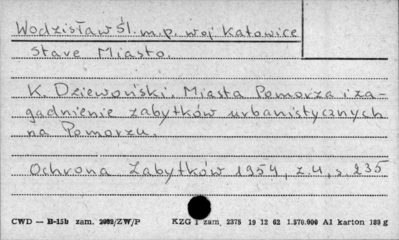 Wodzisław Śl. m.p. woj Katowice
Stare Miasto.
K. Dziewoński. Miasta Pomorza i za-
gadnienie zabytków urbanistycznych
na Pomorzu.
Ochrona Zabytków 1954, z.4, s. 235
CWD — B-15b zam. 2092/ZW/P KZG 1 zam. 2375 19 12 62 1.570.000 A1 karton 180 g